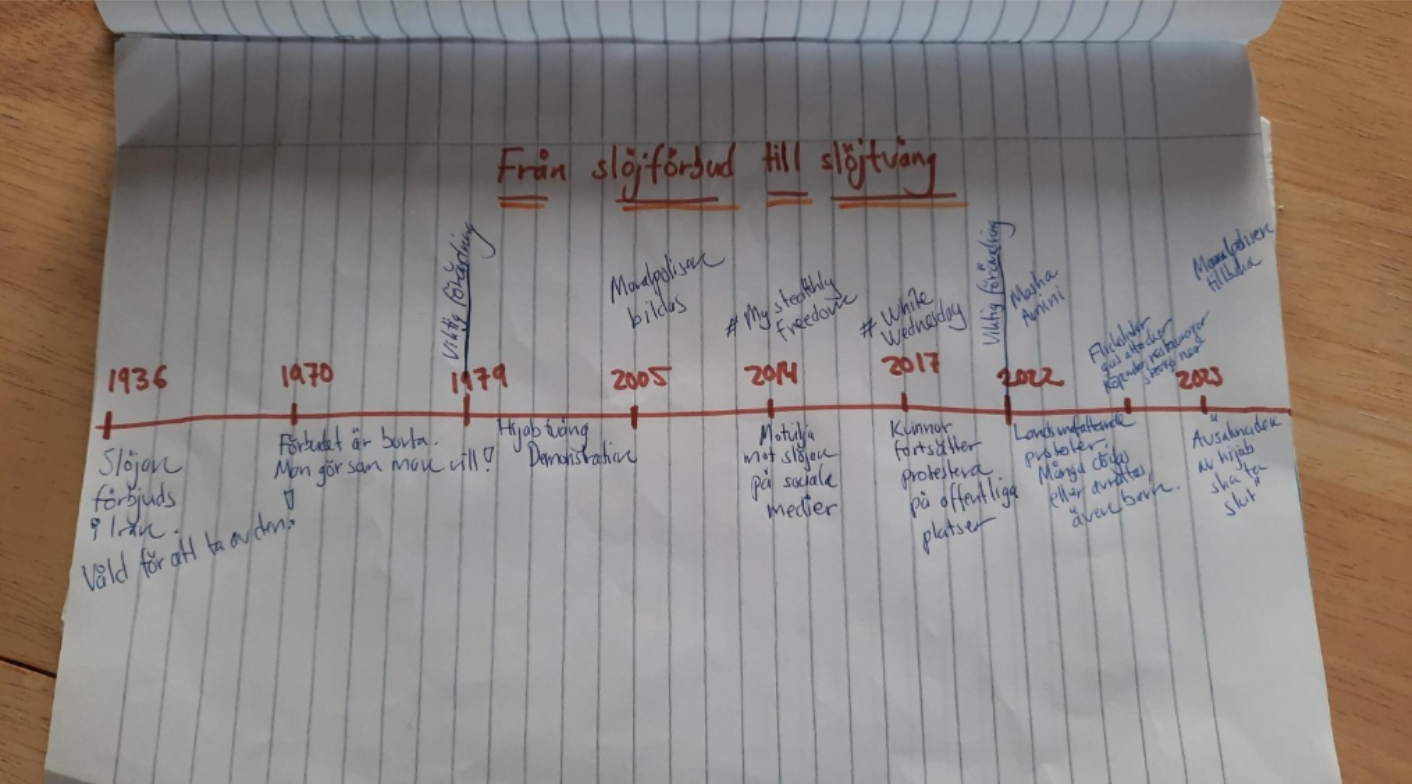 Från slöjförbud till slöjtvång
1936
Slöjan
förbjuds
i Iran.
Våld för att ta av den.
1970
Förbudet är borta.
Man gör som man vill!
Viktig förändring
1979
Hijabtvång
Demonstration
Moralpolisen
bildas
2005
#My stealthly
Freedom
2014
Motvilja
mot slöjan
på sociala
medier
# White
Wednesday
2017
Kvinnor
fortsätter
protestera
på offentliga
platser
Viktig förändring
Masha
Amini
2022
Landsomfattande
protester.
Många dödas
eller avrättas
även barn.
Flickskolor
gas attacker
restauranger
stängs ned
Moralpolisen
tillbaka
2023
"Avsaknaden
av hijab
ska ta
slut"